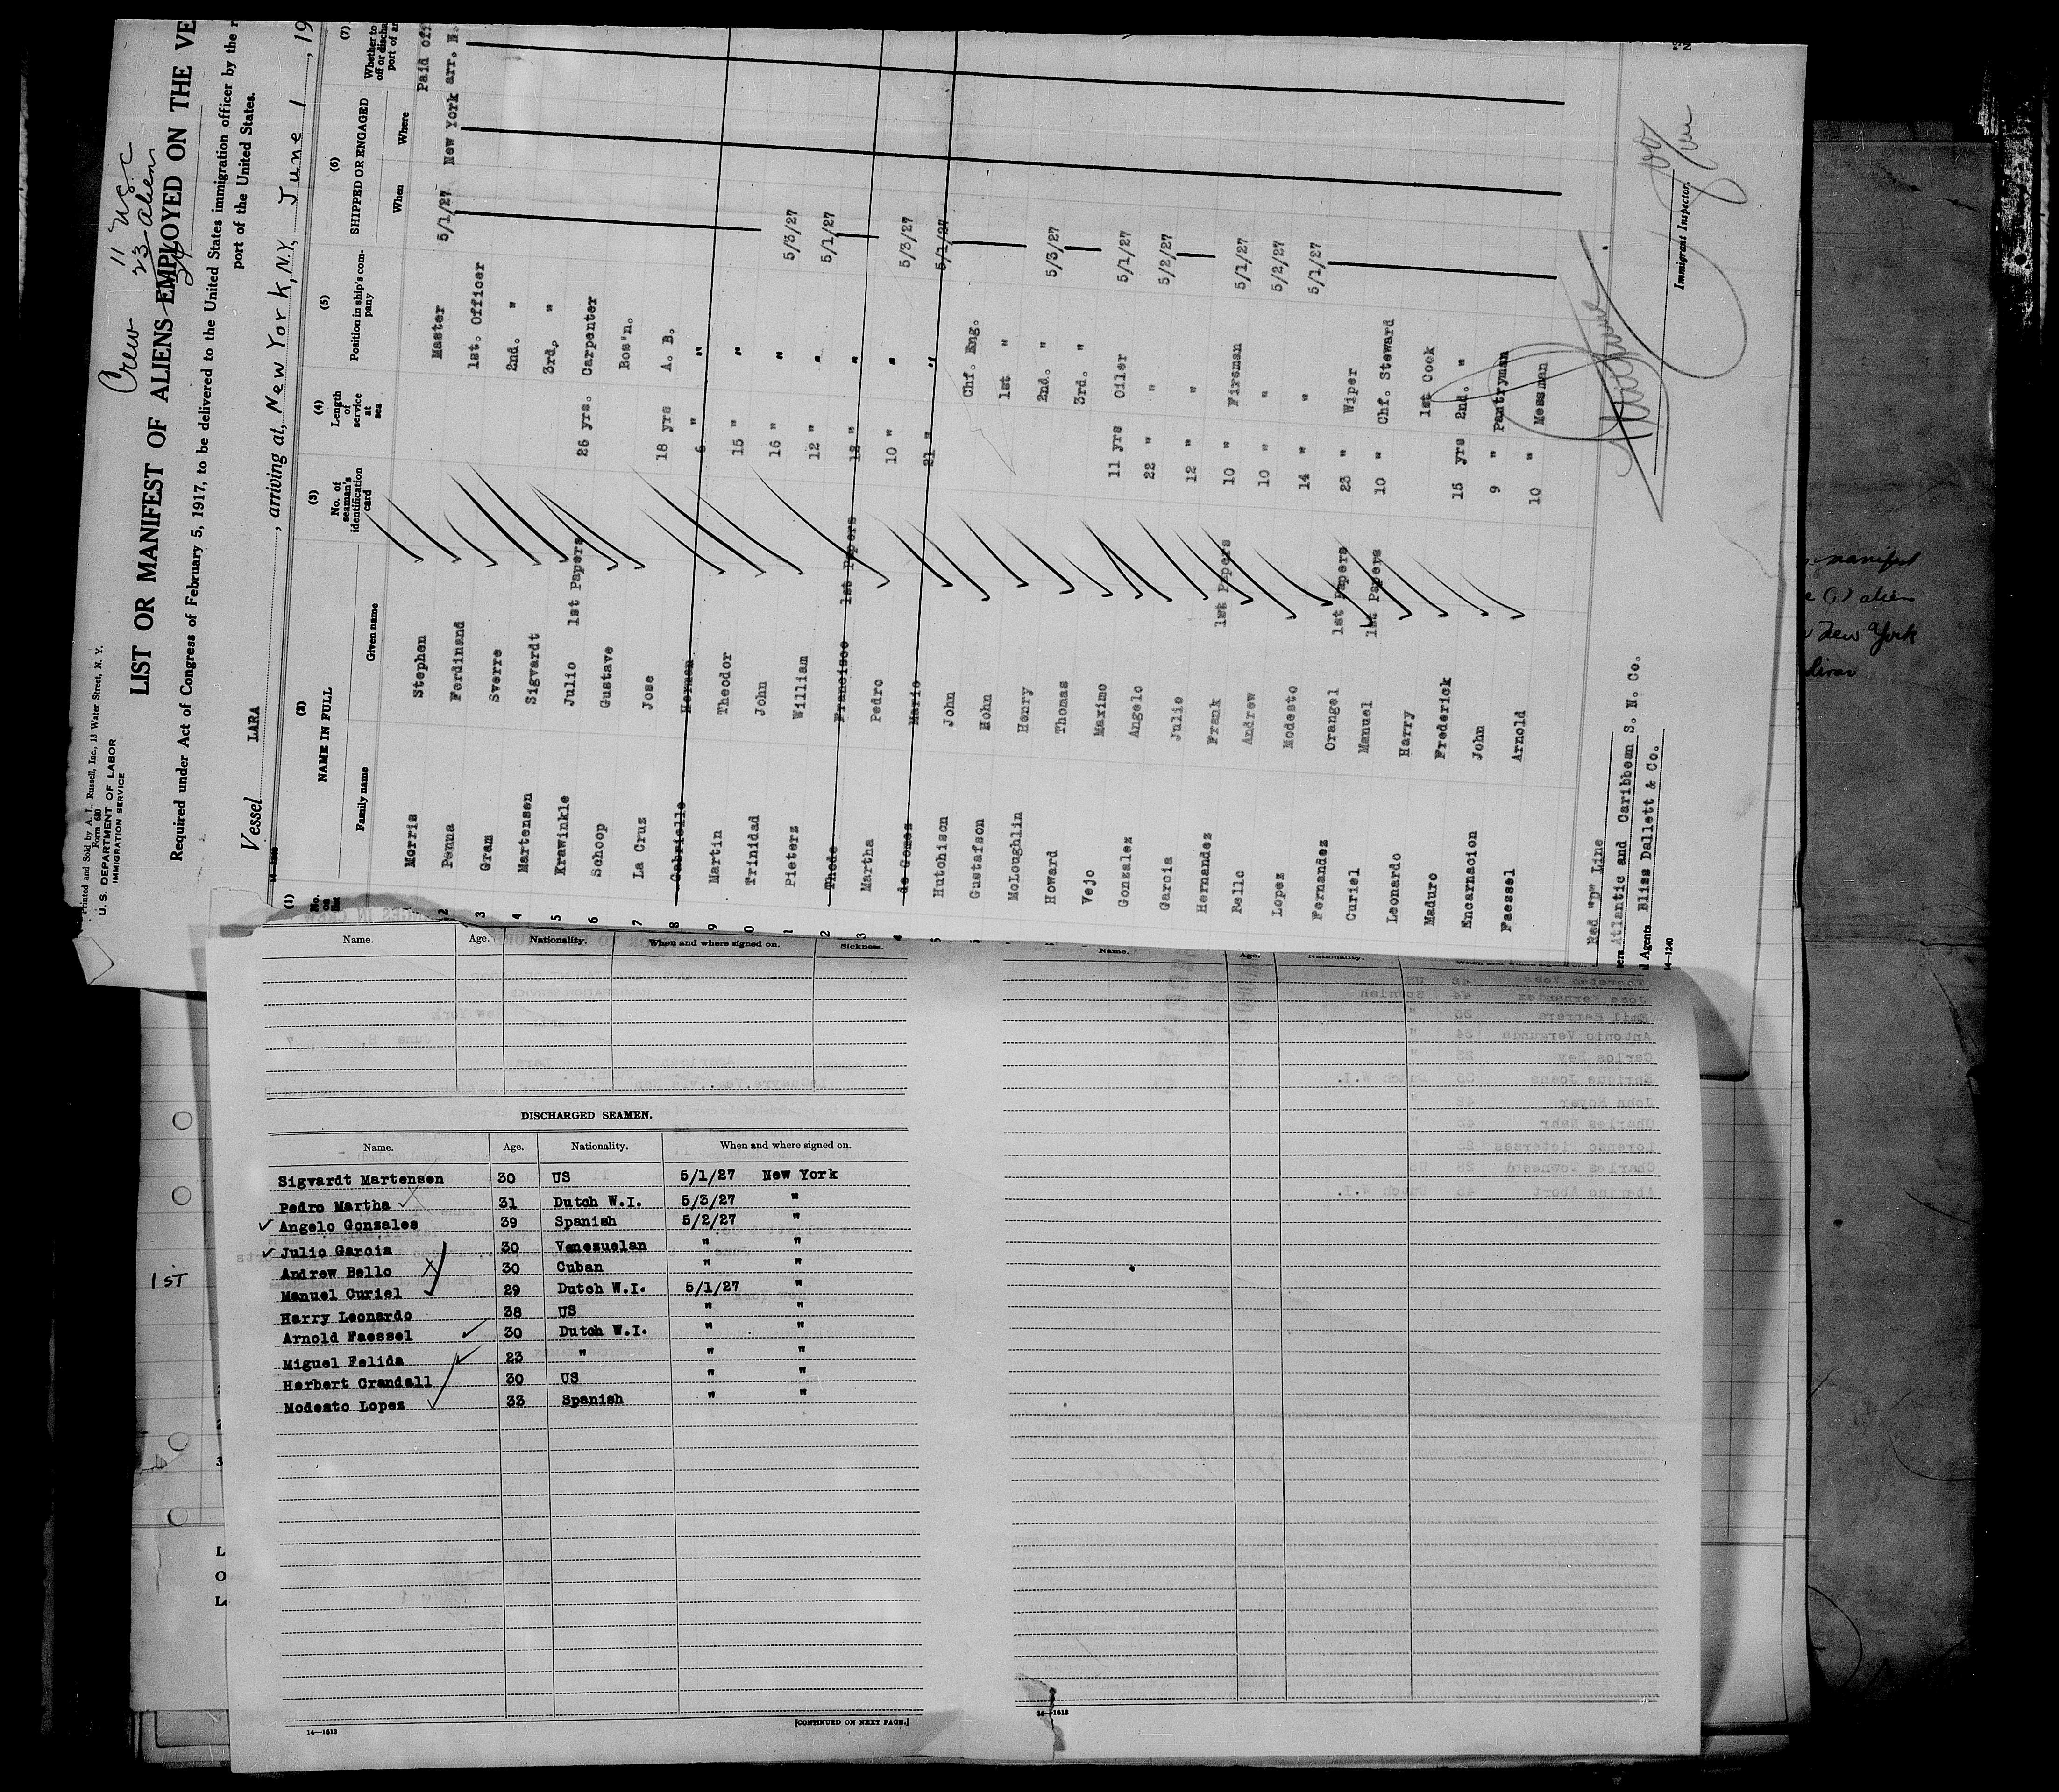 Printed and Sold by A. L. Russell, Inc., 13 Water Street, N. Y.
Form 680
U. S. DEPARTMENT OF LABOR
IMMIGRATION SERVICE
Crew 11 USC
23 aliens
LIST OR MANIFEST OF ALIENS EMPLOYED ON THE VE
Required under Act of Congress of February 5, 1917, to be delivered to the United States immigration officer by the r
port of the United States.
Vessel LARA , arriving at, New York, N.Y, June 1, 19
(1) (2) (3) (4) (5) (6) (7)
No. on list
NAME IN FULL
Family name Given name
No. of seaman's identification card
Length of service at sea
Position in ship's company
SHIPPED OR ENGAGED
When Where
Whether to
off or discha
port of ar
Paid off
Morris Stephen Master 5/1/27 New York arr. N.
2 Penna Ferdinand 1st. Officer
3 Gram Sverre 2nd. "
4 Martensen Sigvardt 3rd. "
5 Krawinkle Julio 1st Papers 26 yrs. Carpenter
6 Schoop Gustave Bos'n.
7 La Cruz Jose 18 yrs A. B.
8 Gabrielle Herman 6 " "
9 Martin Theodor 15 " "
0 Trinidad John 16 " " 5/3/27
1 Pieterz William 12 " " 5/1/27
2 Thode Francisco 1st Papers 12 " "
3 Martha Pedro 10 " " 5/3/27
4 de Gomez Mario 21 " " 5/1/27
5 Hutchison John Chf. Eng.
Gustafson Hohn 1st "
McLoughlin Henry 2nd. " 5/3/27
Howard Thomas 3rd. "
Vejo Maximo 11 yrs Oiler 5/1/27
Gonzalez Angelo 22 " " 5/2/27
Garcia Julio 12 " "
Hernandez Frank 1st Papers 10 " Fireman 5/1/27
Bello Andrew 10 " " 5/2/27
Lopez Modesto 14 " " 5/1/27
Fernandez Orangel 1st Papers 23 " Wiper
Curiel Manuel 1st Papers 10 " Chf. Steward
Leonardo Harry 1st Cook
Maduro Frederick 15 yrs 2nd. "
Encarnacion John 9 " Pantryman
Faessel Arnold 10 " Messman
Red "D" Line
Atlantic and Caribbean S. N. Co.
Agents Bliss Dallett & Co.
14—1240
Immigrant Inspector.
manifest
alien
New York
Name. Age. Nationality. When and where signed on. Sickness.
DISCHARGED SEAMEN.
Name. Age. Nationality. When and where signed on.
Sigvardt Martensen 30 US 5/1/27 New York
Pedro Martha 31 Dutch W.I. 5/3/27 "
Angelo Gonzales 39 Spanish 5/2/27 "
Julio Garcia 30 Venezuelan " "
Andrew Bello 30 Cuban " "
Manuel Curiel 29 Dutch W.I. 5/1/27 "
Harry Leonardo 38 US " "
Arnold Faessel 30 Dutch W.I. " "
Miguel Felida 23 " " "
Herbert Crandall 30 US " "
Modesto Lopez 33 Spanish " "
14—1613
[CONTINUED ON NEXT PAGE.]
Name. Age. Nationality.
14—1613
1ST